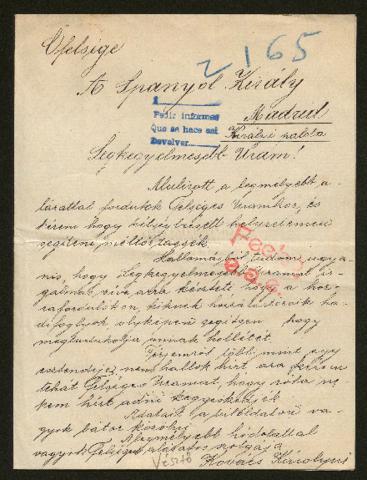 Őfelsége
2165
A Spanyol Király
Madrid
Királyi palota
1
Pedir informes
Que se hace así
Devolver
Legkegyelmesebb Uram!
Alulírott a legmélyebb a-
lázattal fordulok Felséges Uramhoz, és
kérem hogy
helyzetemen
segíteni méltóztassék.
Hallomásból tudom ugyan-
is, hogy Legkegyelmesebb Uramat
arra hogy a hoz-
zá fordulóknak, kiknek hozzátartozóik ha-
difoglyok olyképen segítsen, hogy
megtudakolja annak hollétét.
Férjemről több, mint egy
esztendeje nem hallok hírt, arra kérem
tehát Felséges Uramat, hogy róla ne-
kem hírt adni kegyeskedjék.
Adatait a túloldalon va-
gyok bátor közölni
A legmélyebb hódolattal
vagyok Felséged alázatos szolgája
Kovács Károlyné